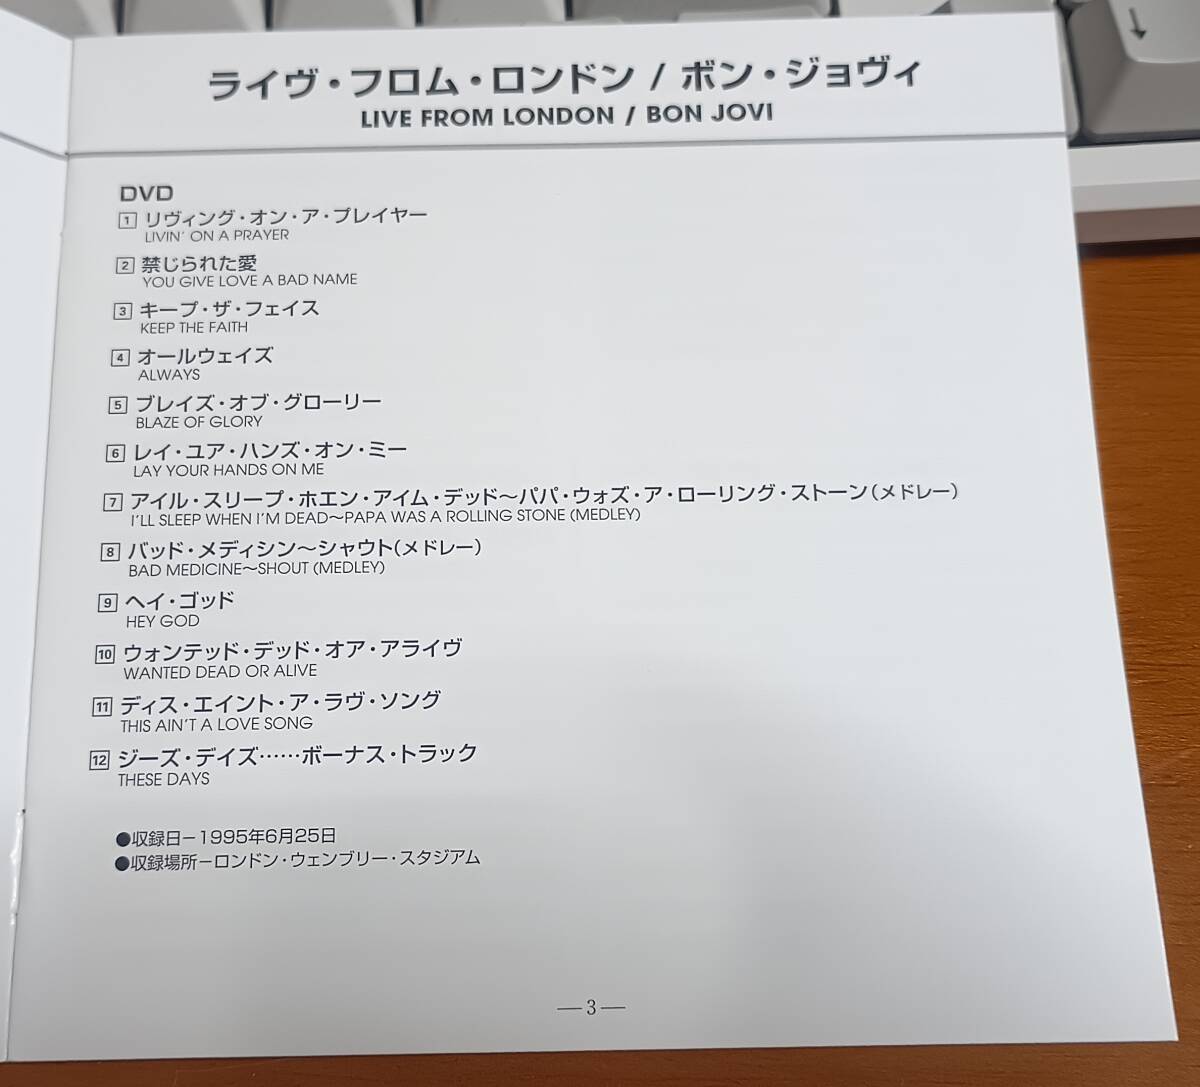 ライヴ・フロム・ロンドン / ボン・ジョヴィ
LIVE FROM LONDON / BON JOVI
DVD
1 リヴィング・オン・ア・プレイヤー
LIVIN' ON A PRAYER
2 禁じられた愛
YOU GIVE LOVE A BAD NAME
3 キープ・ザ・フェイス
KEEP THE FAITH
4 オールウェイズ
ALWAYS
5 ブレイズ・オブ・グローリー
BLAZE OF GLORY
6 レイ・ユア・ハンズ・オン・ミー
LAY YOUR HANDS ON ME
7 アイル・スリープ・ホエン・アイム・デッド～パパ・ウォズ・ア・ローリング・ストーン(メドレー)
I'LL SLEEP WHEN I'M DEAD～PAPA WAS A ROLLING STONE (MEDLEY)
8 バッド・メディシン～シャウト(メドレー)
BAD MEDICINE～SHOUT (MEDLEY)
9 ヘイ・ゴッド
HEY GOD
10 ウォンテッド・デッド・オア・アライヴ
WANTED DEAD OR ALIVE
11 ディス・エイント・ア・ラヴ・ソング
THIS AIN'T A LOVE SONG
12 ジーズ・デイズ……ボーナス・トラック
THESE DAYS
●収録日－1995年6月25日
●収録場所－ロンドン・ウェンブリー・スタジアム
—3—
↓